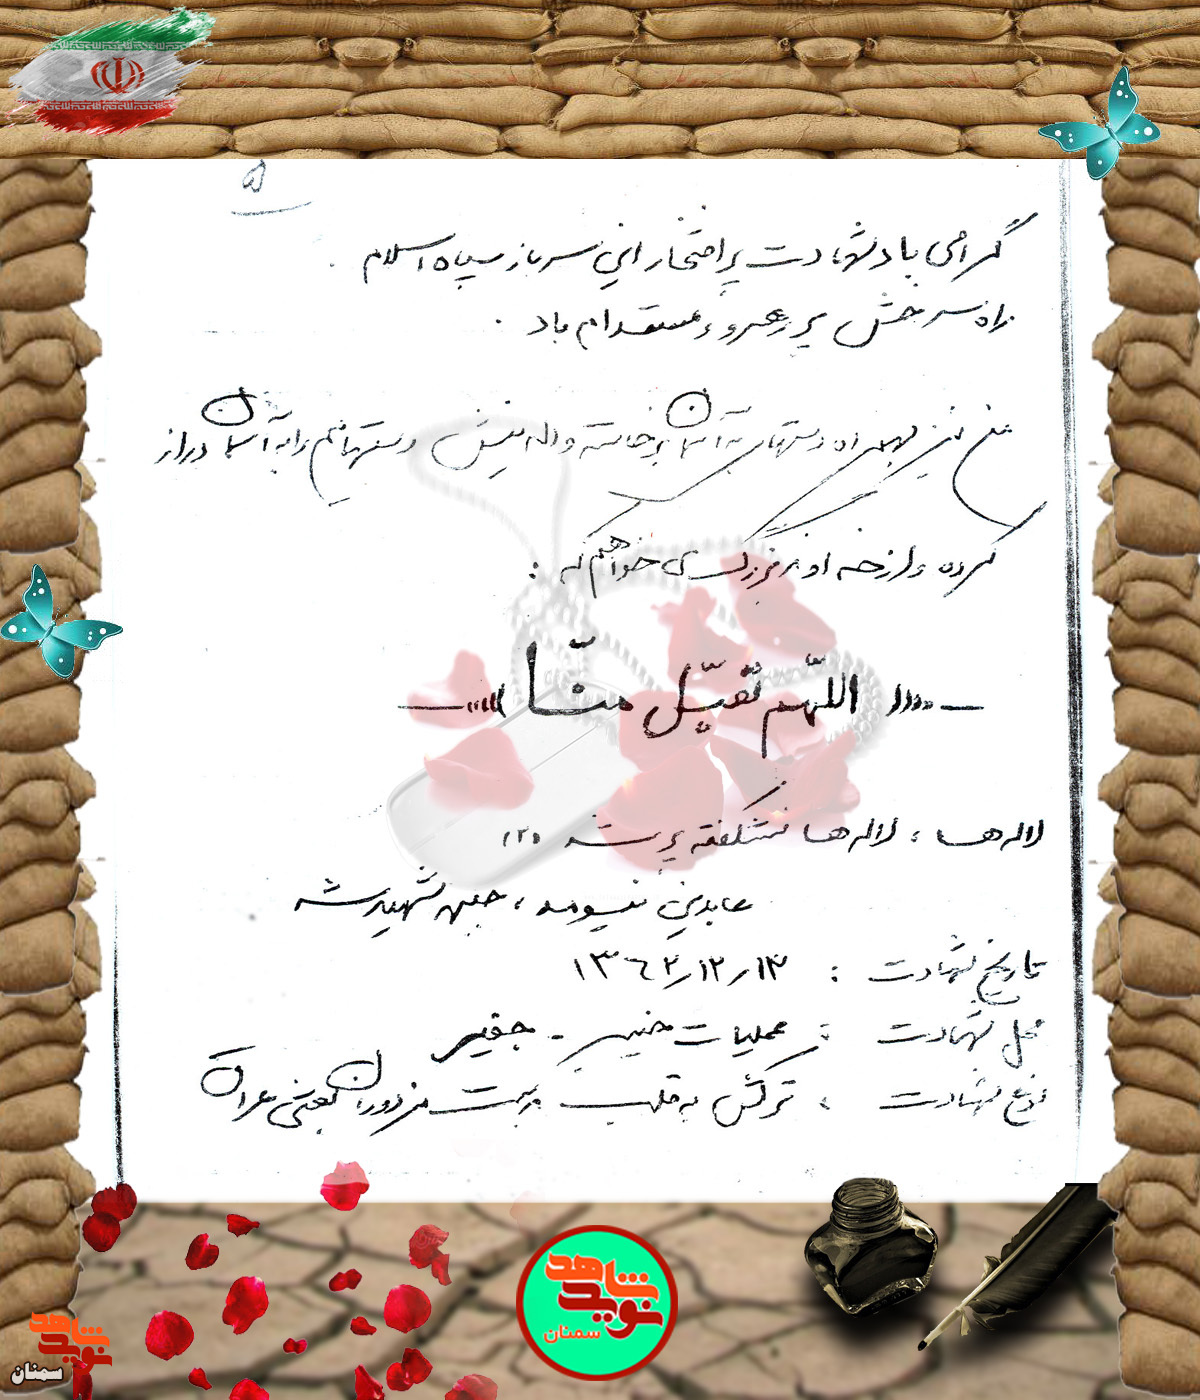 ۵
گرامی باد شهادت پر افتخار این سرباز سپاه اسلام.
راه سرخش پر رهرو و مستدام باد.
من نیز بهمراه دستهای به آسمان برخاسته واله بینش دستهایم را به آسمان دراز
کرده و از خداوند بزرگ می خواهم که :
—«« اللّهم تقبّل منّا »»—
لاله ها ، لاله ها نشکفته پرپر شد (۲)
عابدین نیسومه ، جبهه شهید شد
تاریخ شهادت : ۱۳۶۲/۱۲/۱۳
محل شهادت : عملیات خیبر - جفیر
نوع شهادت : ترکش به قلب بدست مزدوران بعثی عراق
شاهد
نوید
سمنان
شاهد
نوید
سمنان